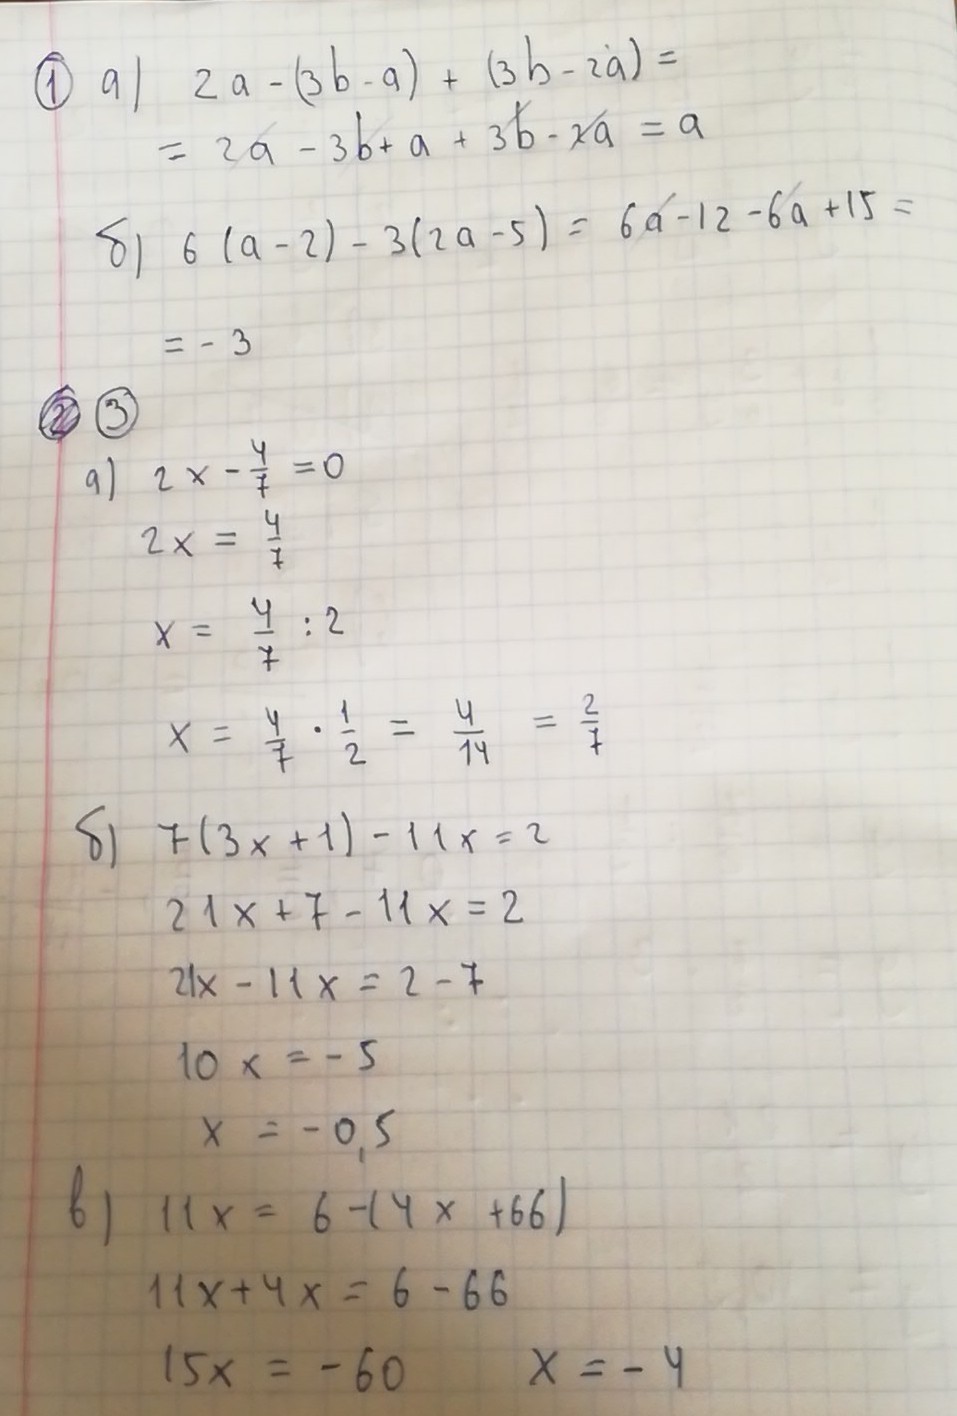 ① а) 2a - (3b - a) + (3b - 2a) =
= 2a - 3b + a + 3b - 2a = a
б) 6 (a - 2) - 3(2a - 5) = 6a - 12 - 6a + 15 =
= - 3
② ③
а) 2x - 4/7 = 0
2x = 4/7
x = 4/7 : 2
x = 4/7 · 1/2 = 4/14 = 2/7
б) 7(3x + 1) - 11x = 2
21x + 7 - 11x = 2
21x - 11x = 2 - 7
10x = - 5
x = - 0,5
в) 11x = 6 - (4x + 66)
11x + 4x = 6 - 66
15x = - 60 x = - 4